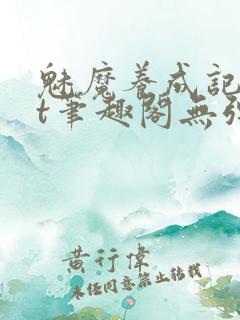 魅魔養成記
t筆趣閣無彈
黃行偉
未經同意禁止轉載